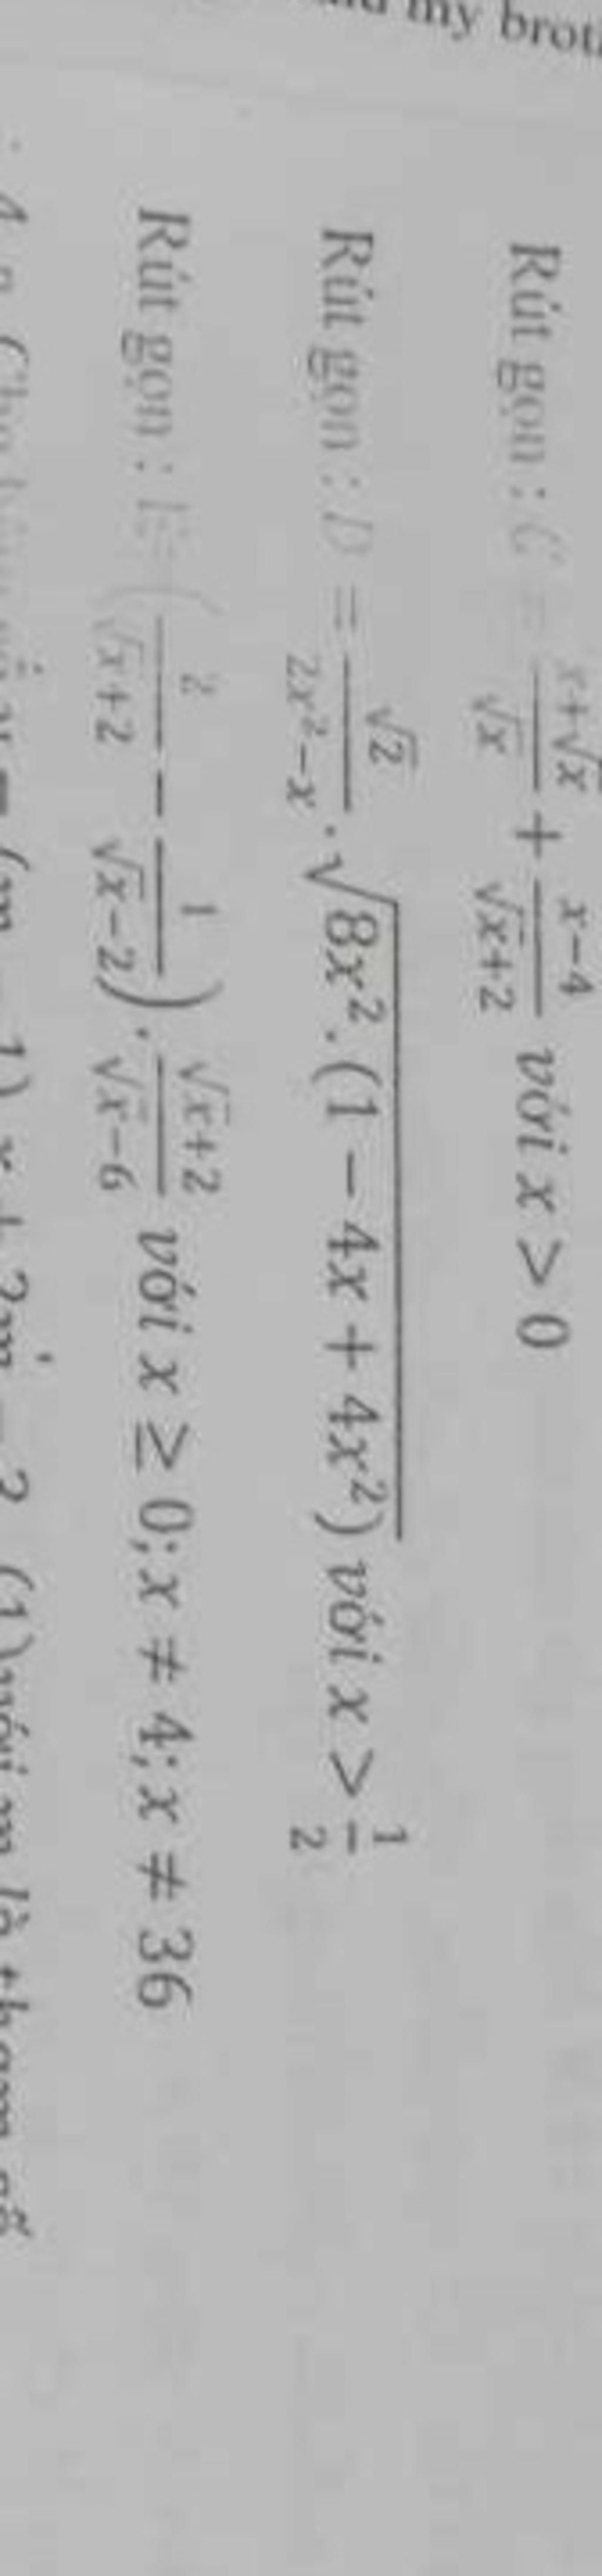 my
Rút gọn : C = \frac{x+\sqrt{x}}{\sqrt{x}} + \frac{x-4}{\sqrt{x}+2} với x > 0
Rút gọn : D = \frac{\sqrt{2}}{2x^2-x} . \sqrt{8x^2.(1 - 4x + 4x^2)} với x > \frac{1}{2}
Rút gọn : E = (\frac{2}{\sqrt{x}+2} - \frac{1}{\sqrt{x}-2}) . \frac{\sqrt{x}+2}{\sqrt{x}-6} với x ≥ 0; x ≠ 4; x ≠ 36
(1) với m là tham số